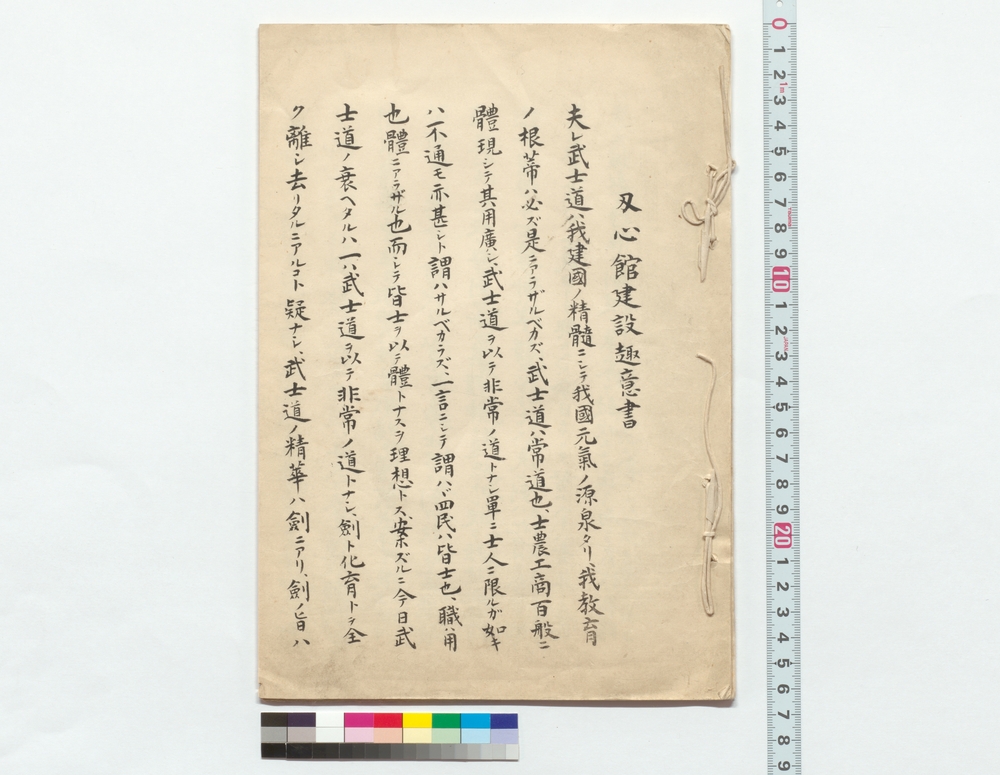 刄心館建設趣意書
夫レ武士道ハ我建國ノ精髓ニシテ我國元氣ノ源泉タリ、我教育
ノ根蔕ハ必ズ是ニアラザルベカズ、武士道ハ常道也、士農工商百般ニ
體現シテ其用廣シ、武士道ヲ以テ非常ノ道トナシ單ニ士人ニ限ルガ如キ
ハ不通モ亦甚シト謂ハサルベカラズ、一言ニシテ謂ハヾ四民ハ皆士也、職ハ用
也體ニアラザル也而シテ皆士ヲ以テ體トナスヲ理想トス、案ズルニ今日武
士道ノ衰ヘタルハ一ハ武士道ヲ以テ非常ノ道トナシ、劍ト化育トヲ全
ク離シ去リタルニアルコト疑ナシ、武士道ノ精華ハ劍ニアリ、劍ノ旨ハ
0 1 2 3 4 5 6 7 8 9 10 1 2 3 4 5 6 7 8 9 20 1 2 3 4 5 6 7 8 9
1m
JAPAN